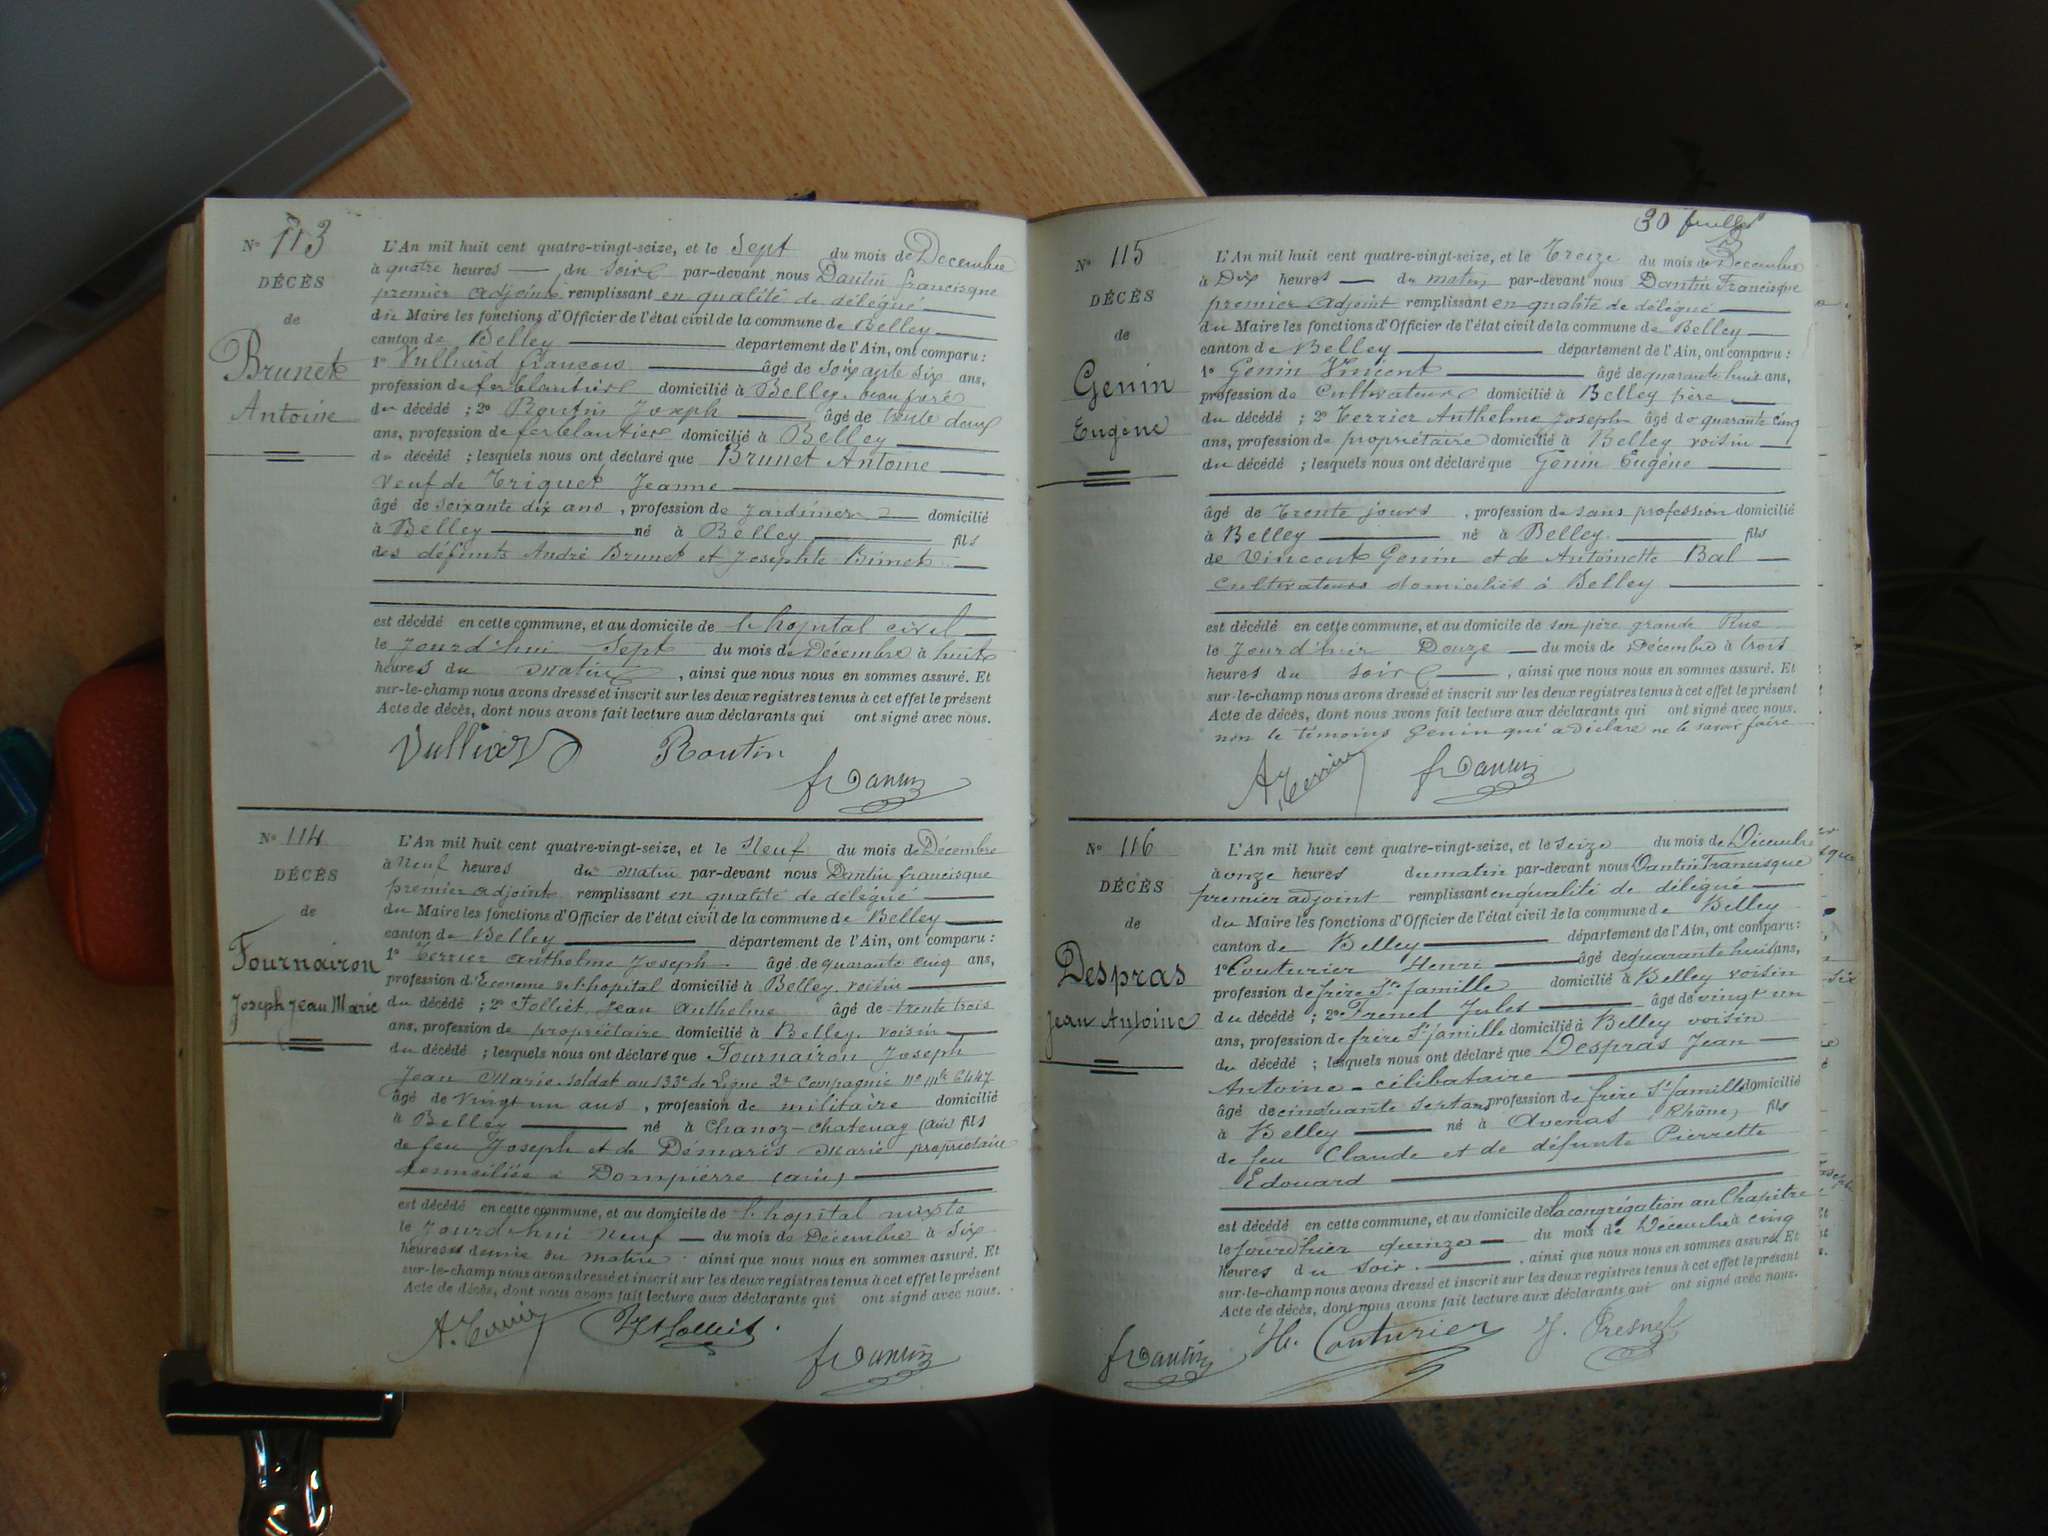 N° 113
DÉCÈS
de
Brunet
Antoine
L'An mil huit cent quatre-vingt-seize, et le Sept du mois de Decembre
à quatre heures du soir par-devant nous Dantin francisque
premier adjoint remplissant en qualité de délégué
du Maire les fonctions d'Officier de l'état civil de la commune de Belley
canton de Belley département de l'Ain, ont comparu :
1° Vulliard françois âgé de soixante six ans,
profession de ferblantier domicilié à Belley. beau frère
du décédé ; 2° Routin Joseph âgé de trente deux
ans, profession de ferblantier domicilié à Belley
du décédé ; lesquels nous ont déclaré que Brunet Antoine
veuf de Triquet Jeanne
âgé de soixante dix ans , profession de jardinier domicilié
à Belley né à Belley fils
des défunts André Brunet et Josephte Binet
est décédé en cette commune, et au domicile de l'hopital civil
le jourd'hui Sept du mois de Décembre à huit
heures du matin , ainsi que nous nous en sommes assuré. Et
sur-le-champ nous avons dressé et inscrit sur les deux registres tenus à cet effet le présent
Acte de décès, dont nous avons fait lecture aux déclarants qui ont signé avec nous.
Vulliard Routin
fr Dantin
N° 114
DÉCÈS
de
Fournairon
Joseph Jean Marie
L'An mil huit cent quatre-vingt-seize, et le Neuf du mois de Décembre
à Neuf heures du matin par-devant nous Dantin francisque
premier adjoint remplissant en qualité de délégué
du Maire les fonctions d'Officier de l'état civil de la commune de Belley
canton de Belley département de l'Ain, ont comparu :
1° Terrier Anthelme Joseph âgé de quarante cinq ans,
profession d'Econome de l'hopital domicilié à Belley. voisin
du décédé ; 2° Folliet Jean Anthelme âgé de trente trois
ans, profession de propriétaire domicilié à Belley. voisin
du décédé ; lesquels nous ont déclaré que Fournairon Joseph
Jean Marie soldat au 133e de Ligne 2e Compagnie n° mle 6447
âgé de vingt un ans , profession de militaire domicilié
à Belley né à Chanoz-Chatenay (ain) fils
de feu Joseph et de Démaris Marie propriétaire
domiciliée à Dompierre (ain)
est décédé en cette commune, et au domicile de l'hopital mixte
le jourd'hui neuf du mois de Décembre à six
heures et demie du matin ainsi que nous nous en sommes assuré. Et
sur-le-champ nous avons dressé et inscrit sur les deux registres tenus à cet effet le présent
Acte de décès, dont nous avons fait lecture aux déclarants qui ont signé avec nous.
A. Terrier Folliet
fr Dantin
30 feuillet
N° 115
DÉCÈS
de
Genin
Eugène
L'An mil huit cent quatre-vingt-seize, et le Treize du mois de Decembre
à Dix heures du matin par-devant nous Dantin Francisque
premier adjoint remplissant en qualité de délégué
du Maire les fonctions d'Officier de l'état civil de la commune de Belley
canton de Belley département de l'Ain, ont comparu :
1° Genin Vincent âgé de quarante huit ans,
profession de Cultivateur domicilié à Belley père
du décédé ; 2° Terrier Anthelme Joseph âgé de quarante cinq
ans, profession de propriétaire domicilié à Belley voisin
du décédé ; lesquels nous ont déclaré que Genin Eugène
âgé de Trente jours , profession de sans profession domicilié
à Belley né à Belley. fils
de Vincent Genin et de Antoinette Bal
cultivateurs domiciliés à Belley
est décédé en cette commune, et au domicile de son père grande Rue
le jour d'hier Douze du mois de Décembre à trois
heures du soir , ainsi que nous nous en sommes assuré. Et
sur-le-champ nous avons dressé et inscrit sur les deux registres tenus à cet effet le présent
Acte de décès, dont nous avons fait lecture aux déclarants qui ont signé avec nous.
non le témoins Genin qui a déclaré ne le savoir faire
A. Terrier fr Dantin
N° 116
DÉCÈS
de
Despras
Jean Antoine
L'An mil huit cent quatre-vingt-seize, et le seize du mois de Décembre
à onze heures du matin par-devant nous Dantin Francisque
premier adjoint remplissant en qualité de délégué
du Maire les fonctions d'Officier de l'état civil de la commune de Belley
canton de Belley département de l'Ain, ont comparu :
1° Couturier Henri âgé de quarante huit ans,
profession de frère Ste famille domicilié à Belley voisin
du décédé ; 2° Frenel Jules âgé de vingt un
ans, profession de frère Ste famille domicilié à Belley voisin
du décédé ; lesquels nous ont déclaré que Despras Jean
Antoine - célibataire
âgé de cinquante sept ans profession de frère Ste famille domicilié
à Belley né à Avenas (Rhône) fils
de feu Claude et de défunte Pierrette
Edouard
est décédé en cette commune, et au domicile de la congrégation au Chapitre
le jour d'hier quinze du mois de Décembre à cinq
heures du soir. , ainsi que nous nous en sommes assuré. Et
sur-le-champ nous avons dressé et inscrit sur les deux registres tenus à cet effet le présent
Acte de décès, dont nous avons fait lecture aux déclarants qui ont signé avec nous.
fr Dantin H. Couturier J. Fresnel